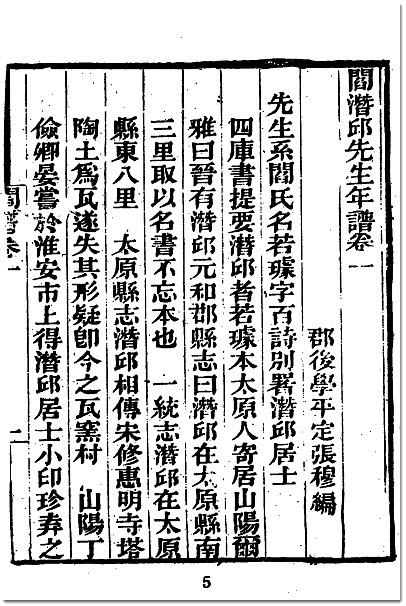 閻潛邱先生年譜卷一
郡後學平定張穆編
先生系閻氏名若璩字百詩別署潛邱居士
四庫書提要潛邱者若璩本太原人寄居山陽爾
雅曰晉有潛邱元和郡縣志曰潛邱在太原縣南
三里取以名書不忘本也 一統志潛邱在太原
縣東八里 太原縣志潛邱相傳宋修惠明寺塔
陶土爲瓦遂失其形疑卽今之瓦窯村 山陽丁
儉卿晏嘗於淮安市上得潛邱居士小印珍弆之
閻譜卷一
二
5